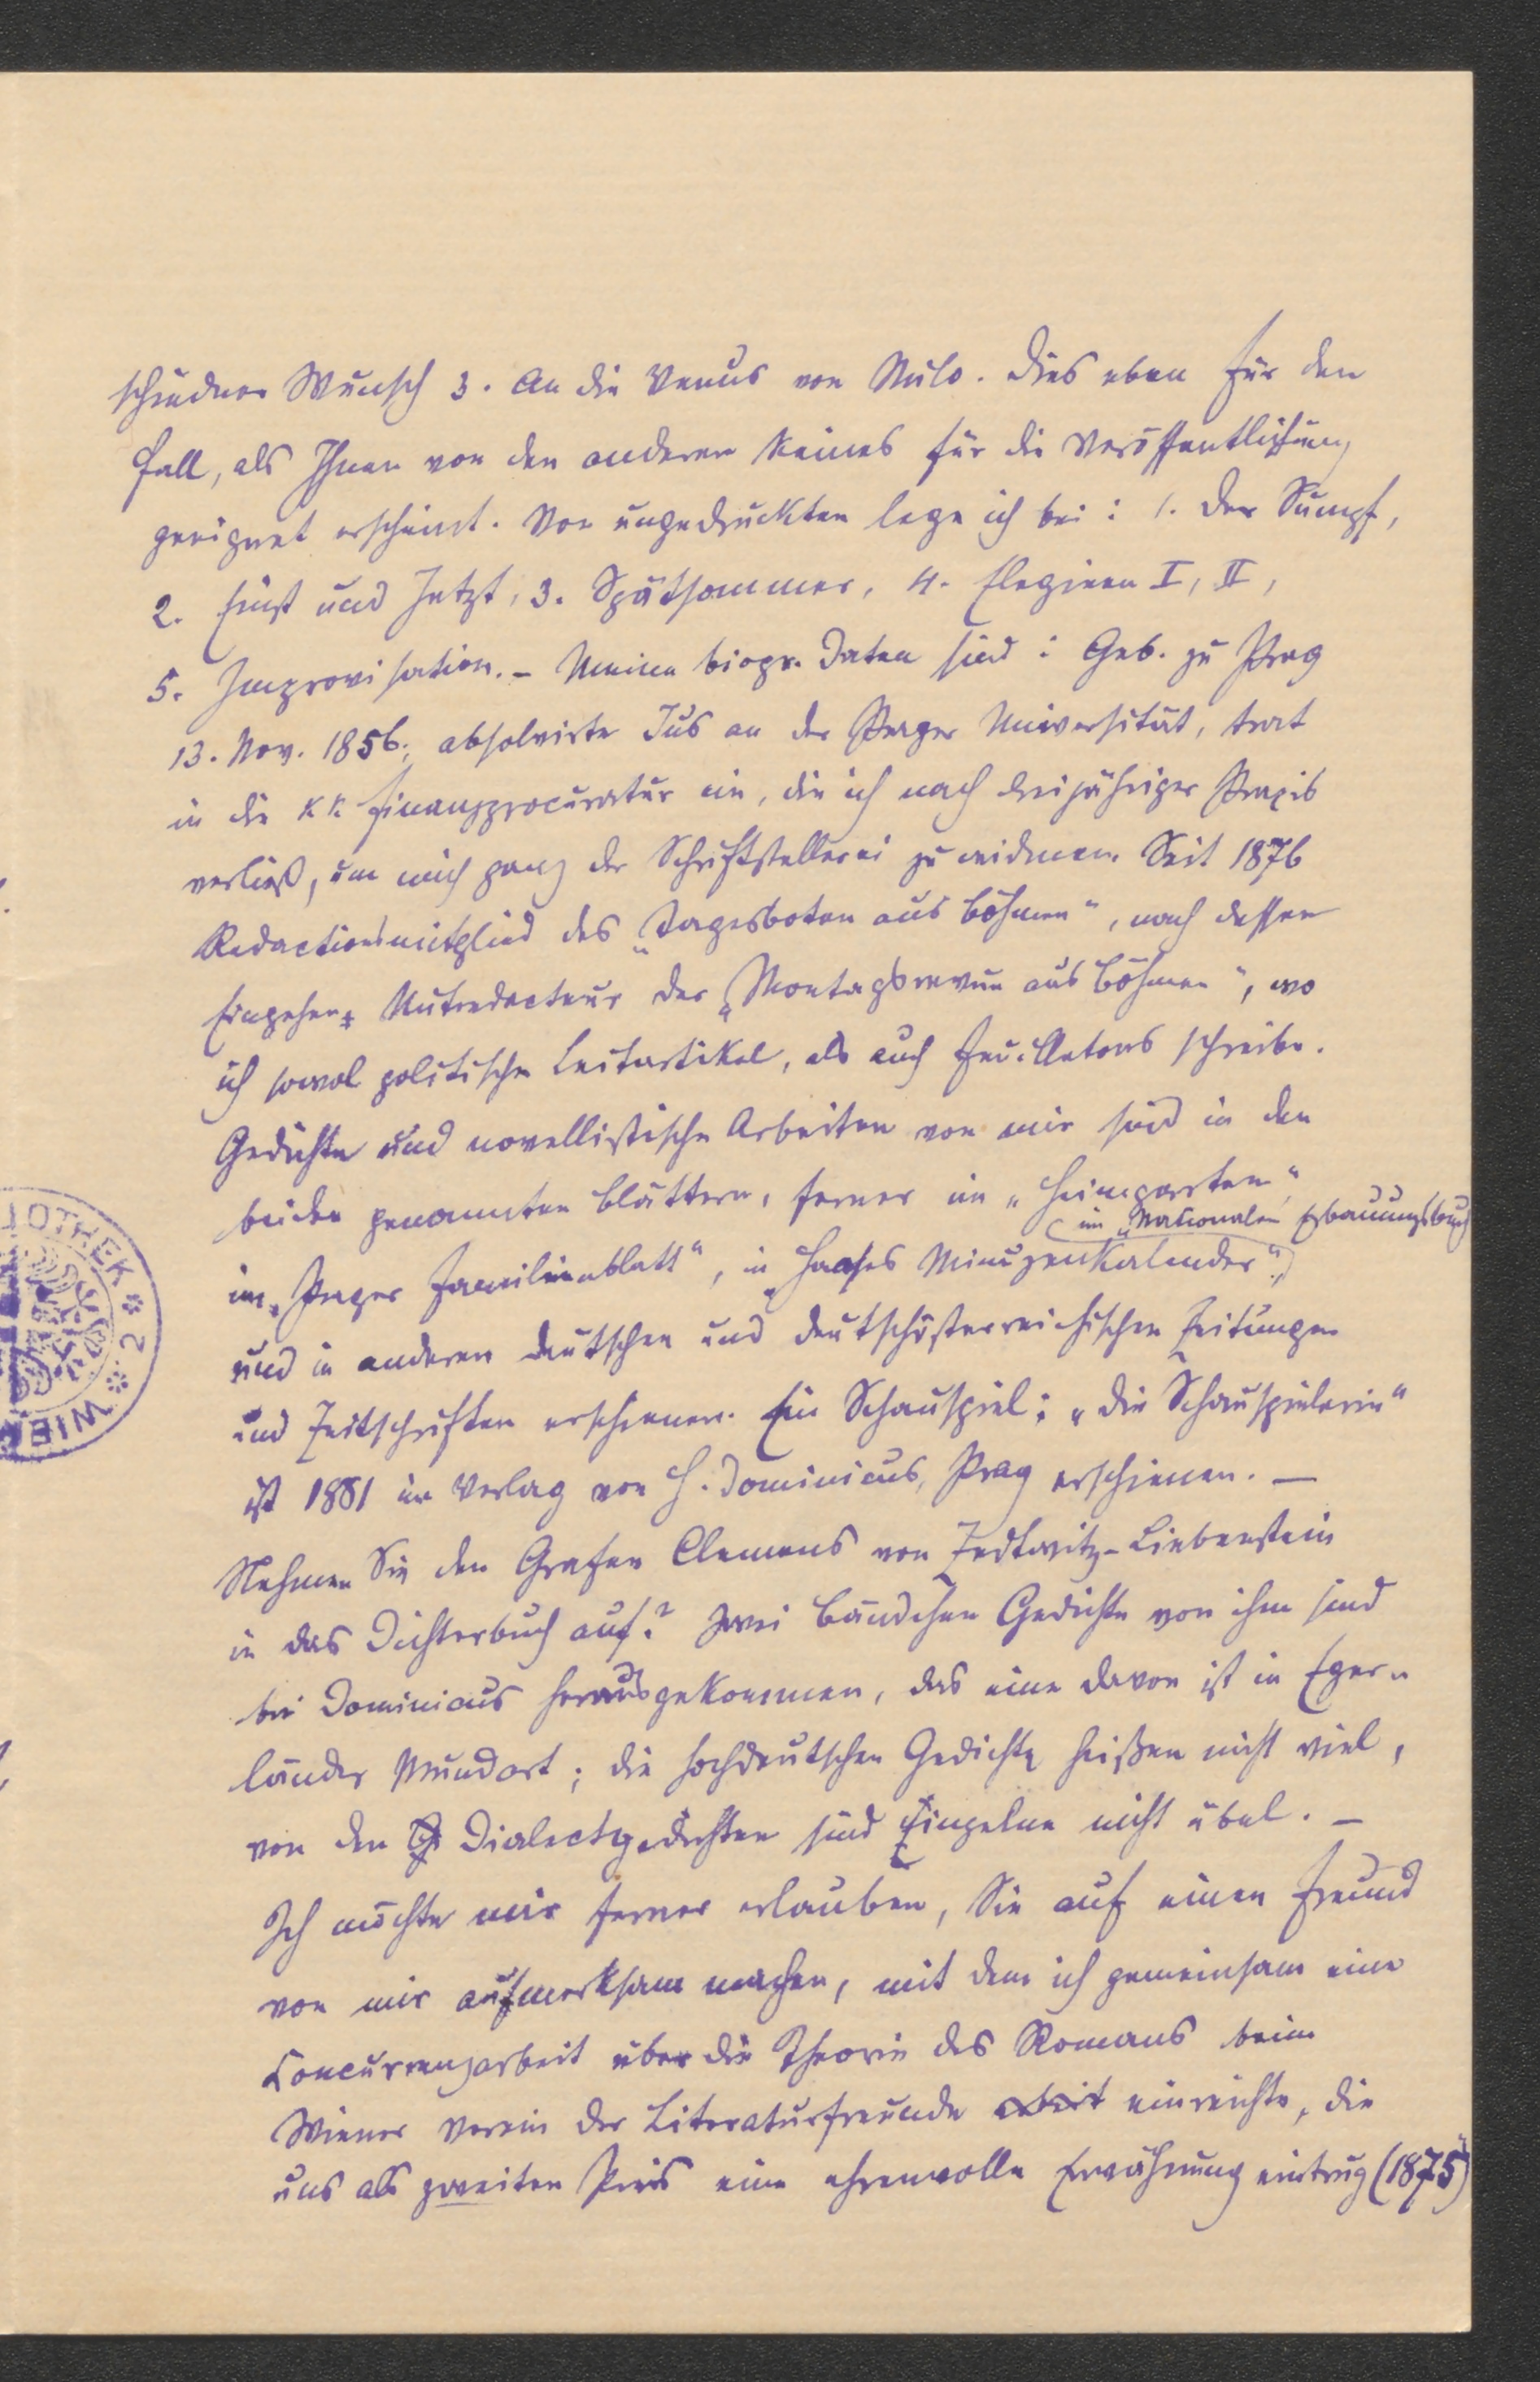 schiedner Wunsch 3. An die Venus von Milo. Dies eben für den
Fall, als Ihnen von den anderen keines für die Veröffentlichung
geeignet erscheint. Von ungedruckten lege ich bei: 1. Der Sumpf,
2. Einst und Jetzt, 3. Spätsommer, 4. Elegieen I, II,
5. Improvisation. – Meine biogr. Daten sind: Geb. zu Prag
13. Nov. 1856; absolvirte Jus an der Prager Universität, trat
in die k.k. Finanzprocuratur ein, die ich nach dreijähriger Praxis
verließ, um mich ganz der Schriftstellerei zu widmen. Seit 1876
Redactionsmitglied des „Tagesboten aus Böhmen", nach dessen
Eingehen Mitredacteur der „Montagsrevue aus Böhmen", wo
ich sowol politische Leitartikel, als auch Feuilletons schreibe.
Gedichte und novellistische Arbeiten von mir sind in den
beiden genannten Blättern, ferner im „Heimgarten",
im „Nationalen Erbauungsbuch
im „Prager Familienblatt", in „Haases Minuzenkalender",
und in anderen deutschen und deutschösterreichischen Zeitungen
und Zeitschriften erschienen. Ein Schauspiel: „Die Schauspielerin"
ist 1881 im Verlag von H. Dominicus, Prag erschienen. —
Nehmen Sie den Grafen Clemens von Zedtwitz-Liebenstein
in das Dichterbuch auf? Zwei Bändchen Gedichte von ihm sind
bei Dominicus herausgekommen, das eine davon ist in Eger-
länder Mundart; die hochdeutschen Gedichte heißen nicht viel,
von den G Dialectgedichten sind Einzelne nicht übel. –
Ich möchte mir ferner erlauben, Sie auf einen Freund
von mir aufmerksam machen, mit dem ich gemeinsam eine
Concurrenzarbeit über die Theorie des Romans beim
Wiener Verein der Literaturfreunde einreichte, die
uns als zweiten Preis eine ehrenvolle Erwähnung eintrug (1875)
JOTHEK * 2 * WIE